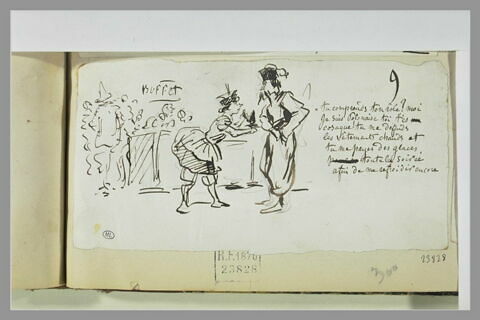 BUFFET
9
Tu comprends ton rôle? moi
je suis Polonaise toi tu es
cosaque tu me défends
les vêtements chauds et
tu me payes des glaces
toute la soirée
afin de me refroidir encore
ML
R.F. 1870
23828
23828